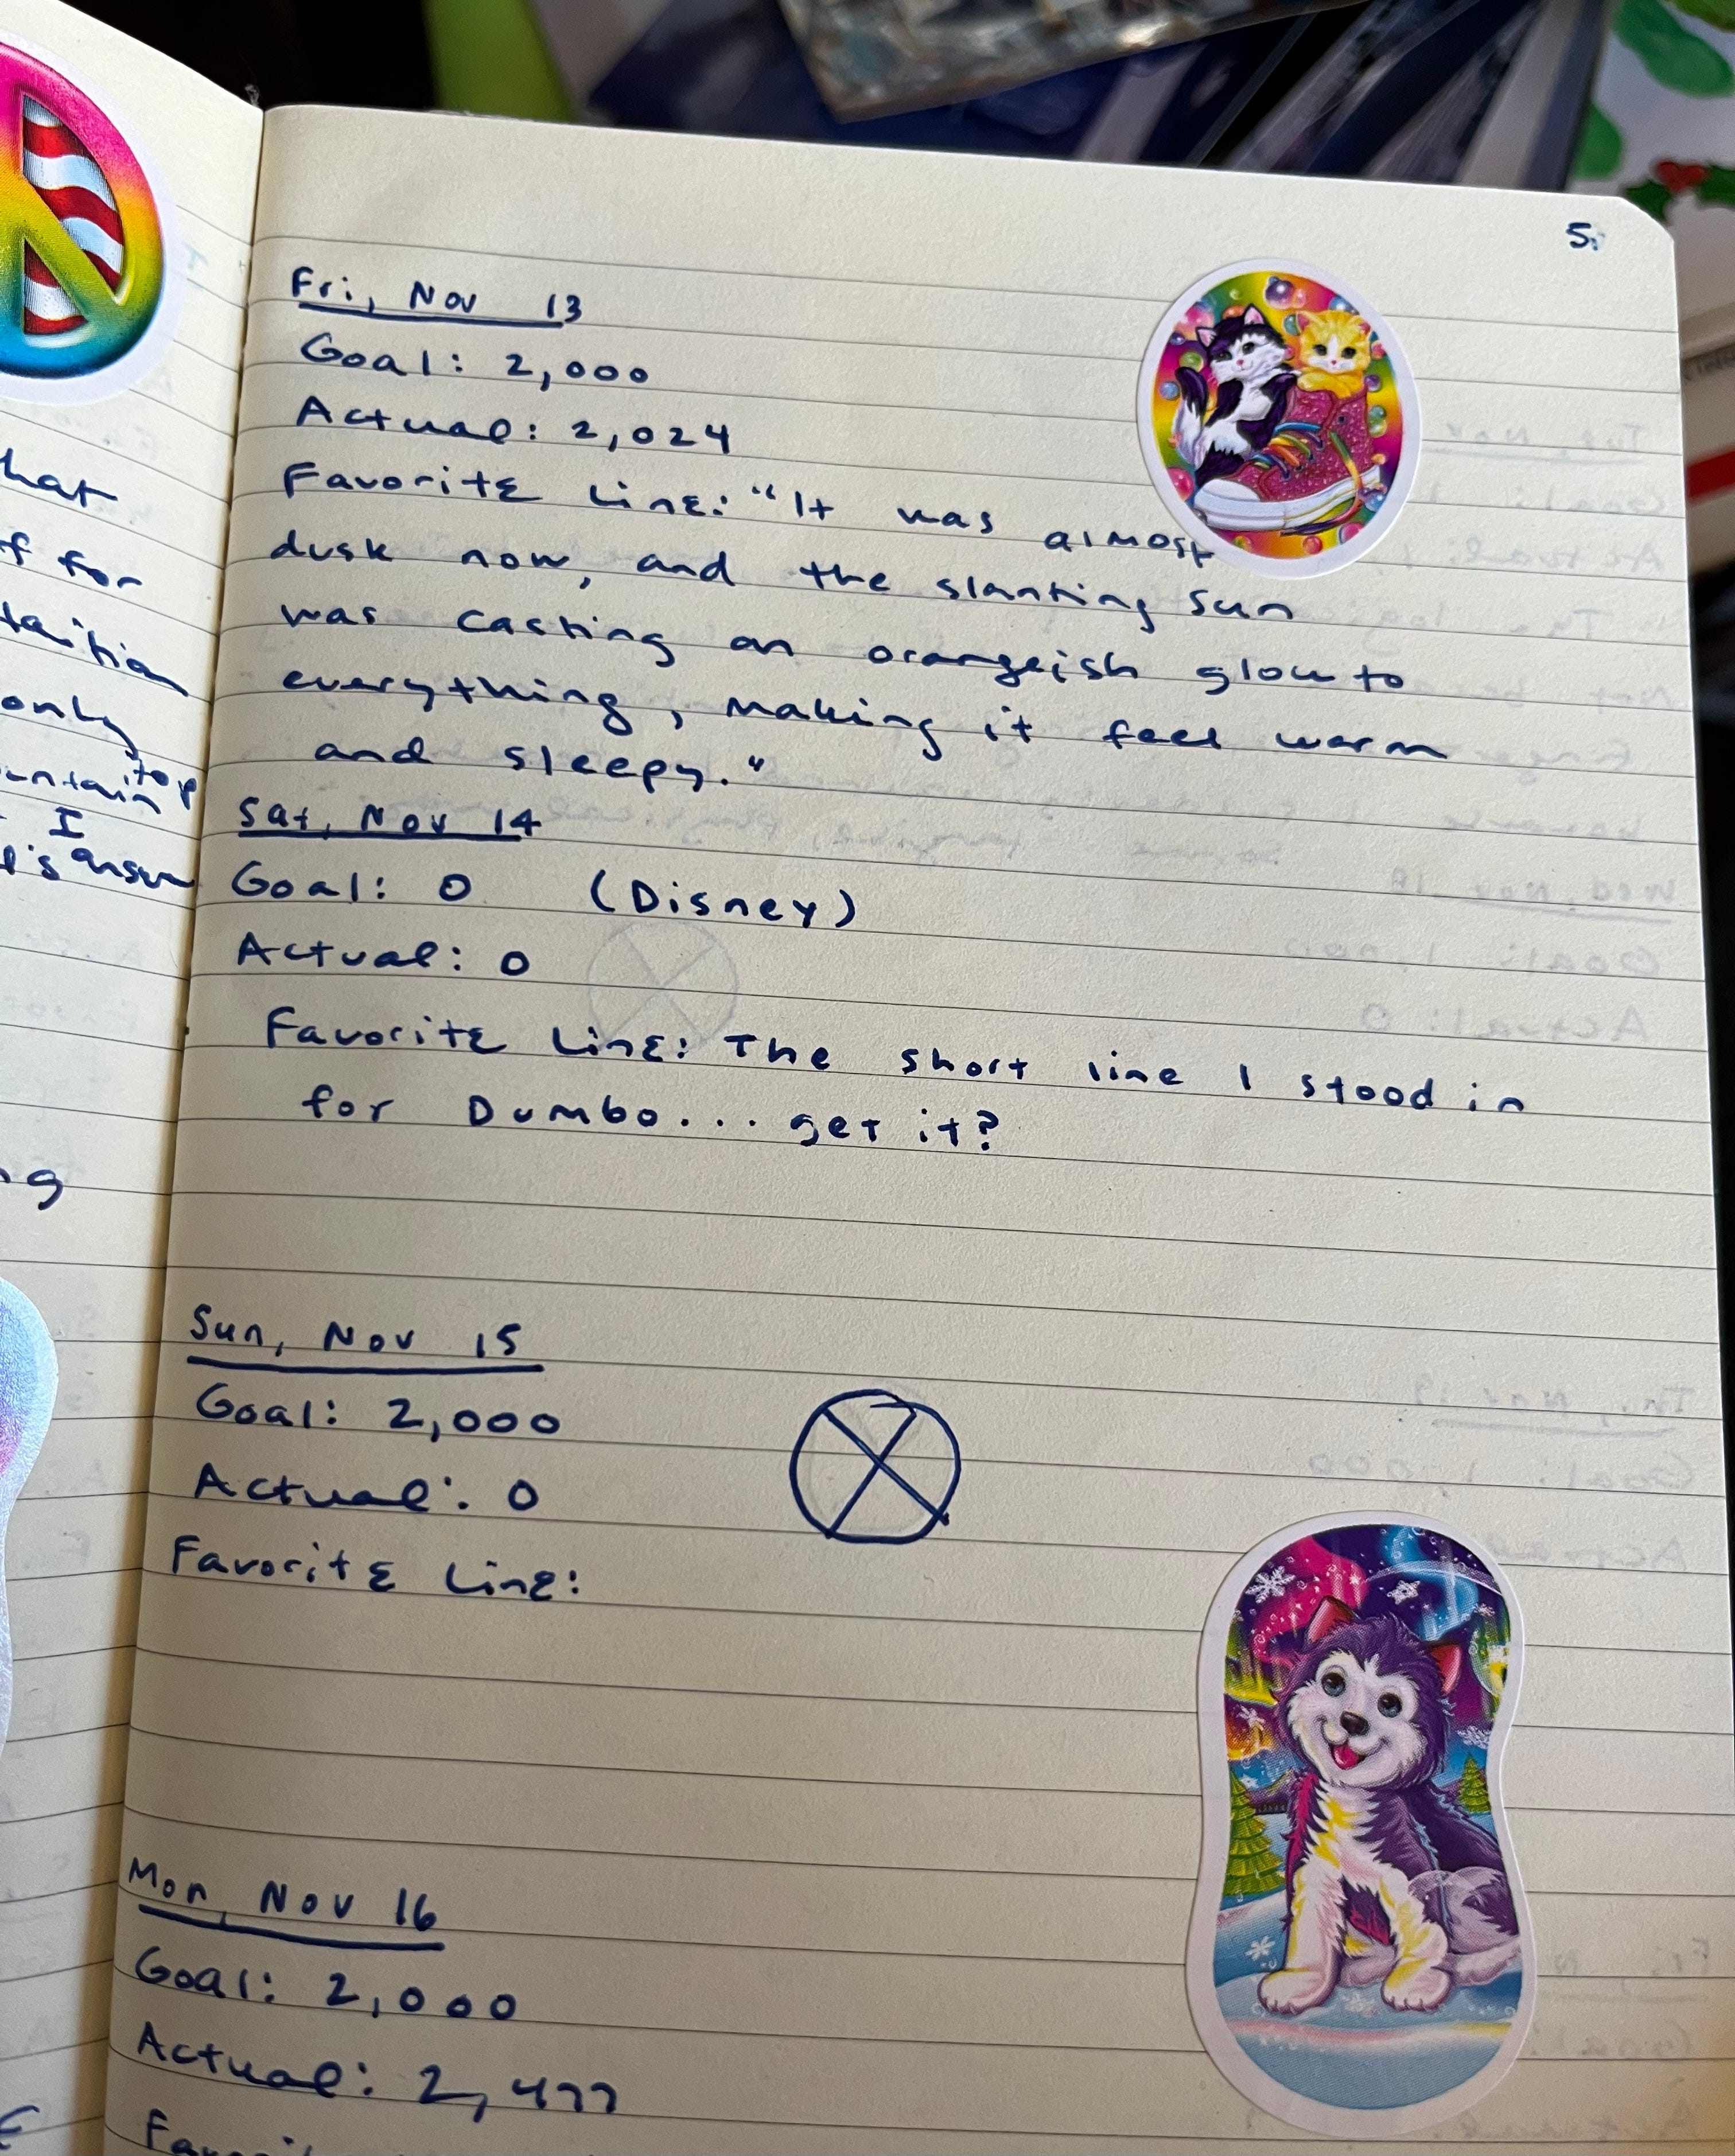 5.
Fri, Nov 13
Goal: 2,000
Actual: 2,024
Favorite Line: "It was almost
dusk now, and the slanting sun
was casting an orangeish glow to
everything, making it feel warm
and sleepy."
Sat, Nov 14
Goal: 0 (Disney)
Actual: 0
Favorite Line: The short line I stood in
for Dumbo... get it?
Sun, Nov 15
Goal: 2,000
Actual: 0
Favorite Line:
Mon, Nov 16
Goal: 2,000
Actual: 2,477
for
only
top
I